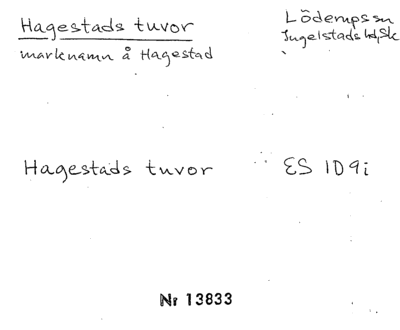 Hagestads tuvor
marknamn å Hagestad
Löderups sn
Ingelstads hd, Sk
Hagestads tuvor
ES 1D 9i
Nr 13833